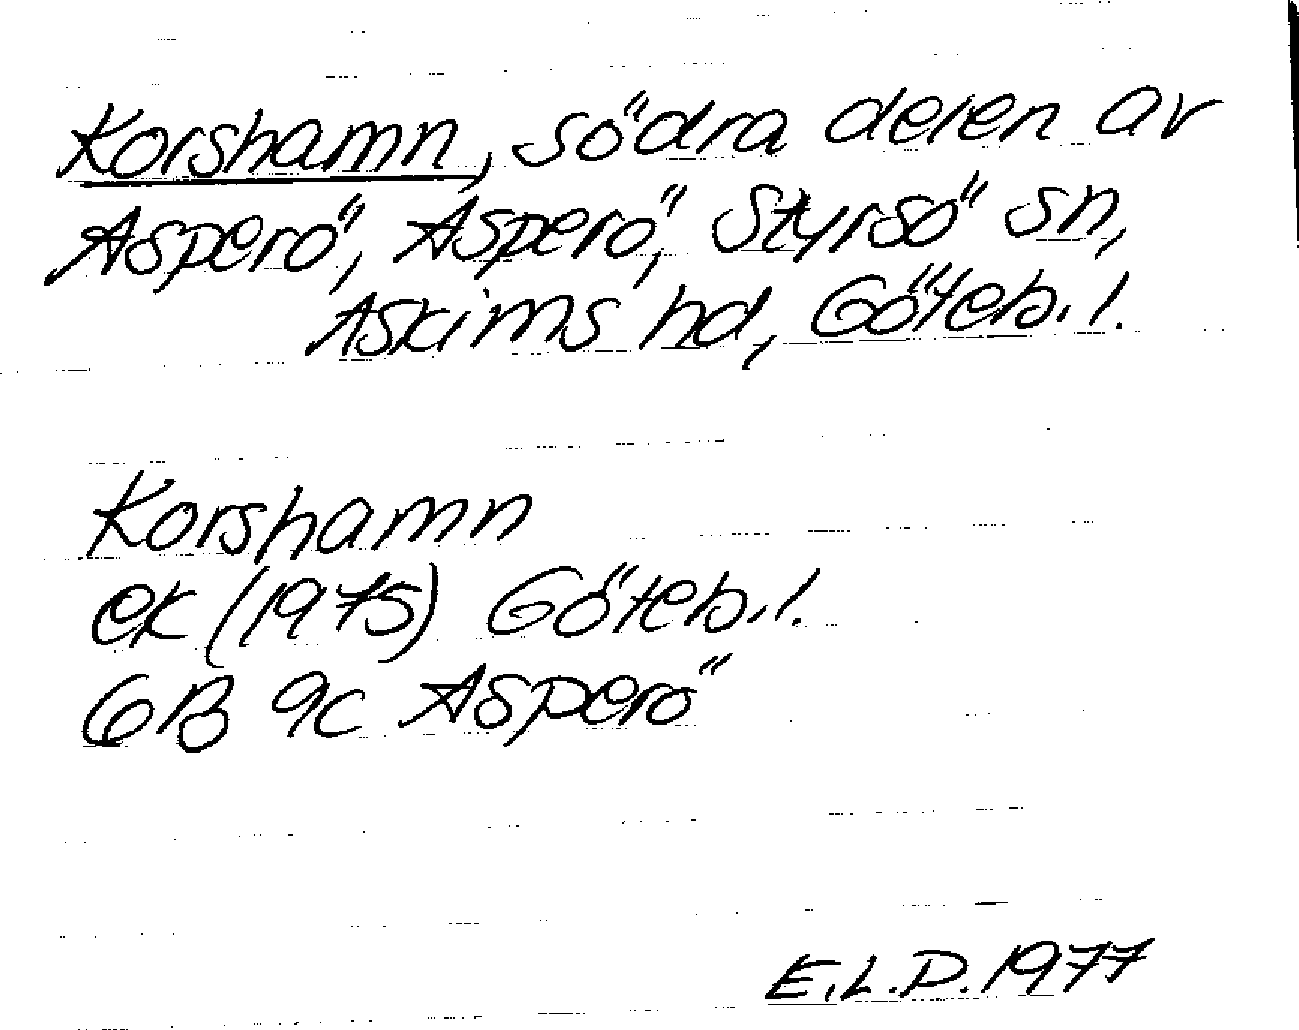 Korshamn, södra delen av
Asperö, Asperö, Styrsö sn,
Askims hd, Göteb.l.
Korshamn
ek (1975) Göteb.l.
6B 9c Asperö
E.L.D. 1977